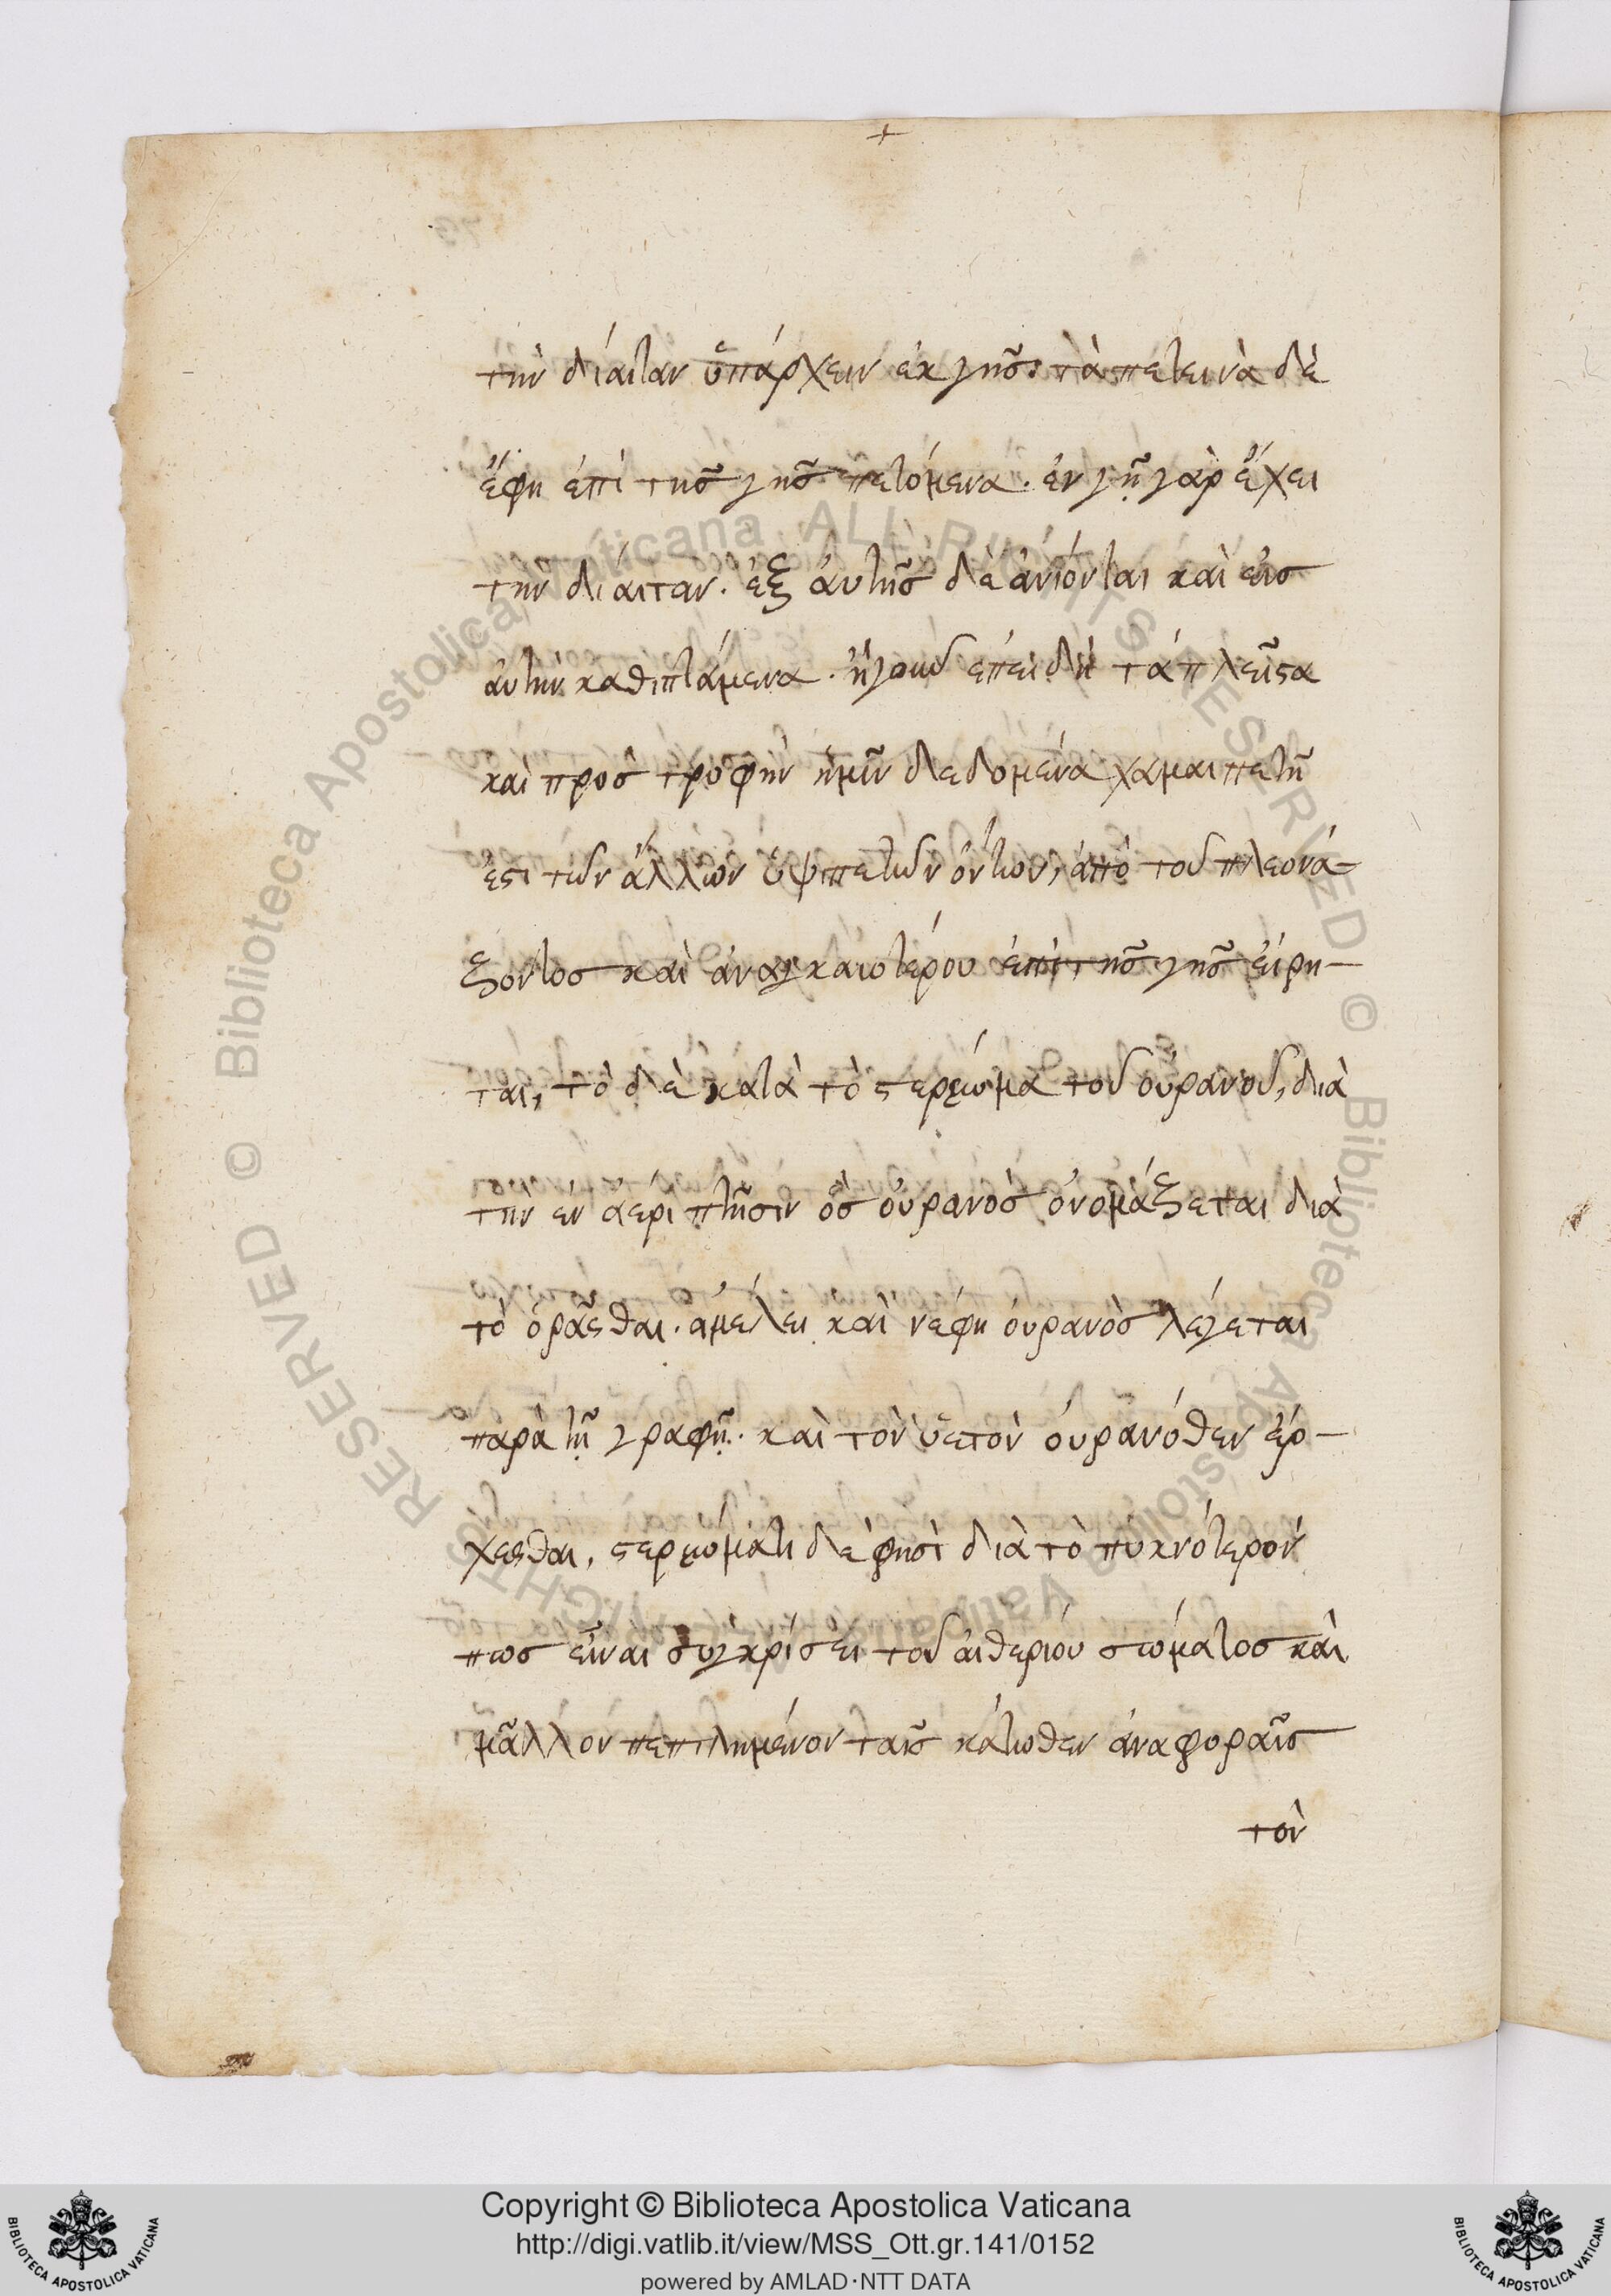 την δίαιταν ὑπάρχειν ἐκ γῆς. τὰ πετεινὰ δὲ
ἔφη ἐπὶ τῆς γῆς πετόμενα. ἐν γῇ γὰρ ἔχει
την δίαιταν. ἐξ ἀυτῆς δὲ ἀνιόνται καὶ εἰσ
ἀυτὴν καθιπτάμενα. ἤγουν ἐπειδὴ τά πλεῖςα
καὶ προς τροφὴν ἡμῖν δεδομένα χαμαιπετῆ
ἐςι τῶν ἄλλων ὑψιπετῶν ὄντων, ἀπὸ τοῦ πλεονά-
ζοντος καὶ ἀναγκαιοτέρου ἐπὶ τῆς γῆς εἴρη-
ται, τὸ δὲ κατὰ τὸ ςερέωμα τοῦ οὐρανοῦ, διὰ
τὴν ἐν ἀέρι πτῆσιν ὃς οὐρανὸς ὀνομάζεται διὰ
τὸ ὁρᾶςθαι. ἀμέλει καὶ νέφη ὀυρανὸς λέγεται
παρὰ τῇ γραφῇ. καὶ τὸν ὑετὸν ὀυρανόθεν ἔρ-
χεςθαι, ςερεώματι δέ φησὶ διὰ τὸ πυκνότερον
πως εἶναι συγκρίσει τοῦ αἰθερίου σώματος καὶ
μᾶλλον πεπιλημένον ταῖς κάτωθεν ἀναφοραῖς
τὸν
Copyright © Biblioteca Apostolica Vaticana
http://digi.vatlib.it/view/MSS_Ott.gr.141/0152
powered by AMLAD·NTT DATA
BIBLIOTECA APOSTOLICA VATICANA
BIBLIOTECA APOSTOLICA VATICANA
© Biblioteca Apostolica Vaticana ALL RIGHTS RESERVED © Biblioteca Apostolica Vaticana ALL RIGHTS RESERVED